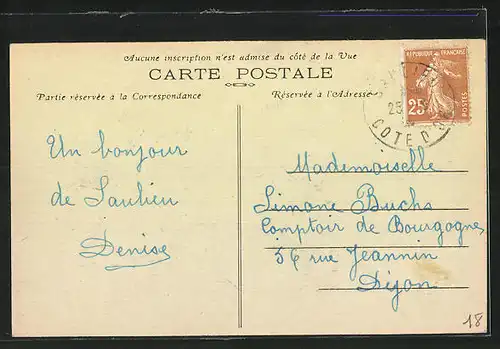 Aucune inscription n'est admise du côté de la Vue
CARTE POSTALE
Partie réservée à la Correspondance
Réservée à l'Adresse
REPUBLIQUE FRANÇAISE
25
POSTES
25
COTE D'
Un bonjour
de Saulieu
Denise
Mademoiselle
Simone Buchs
Comptoir de Bourgogne
56 rue Jeannin
Dijon
18